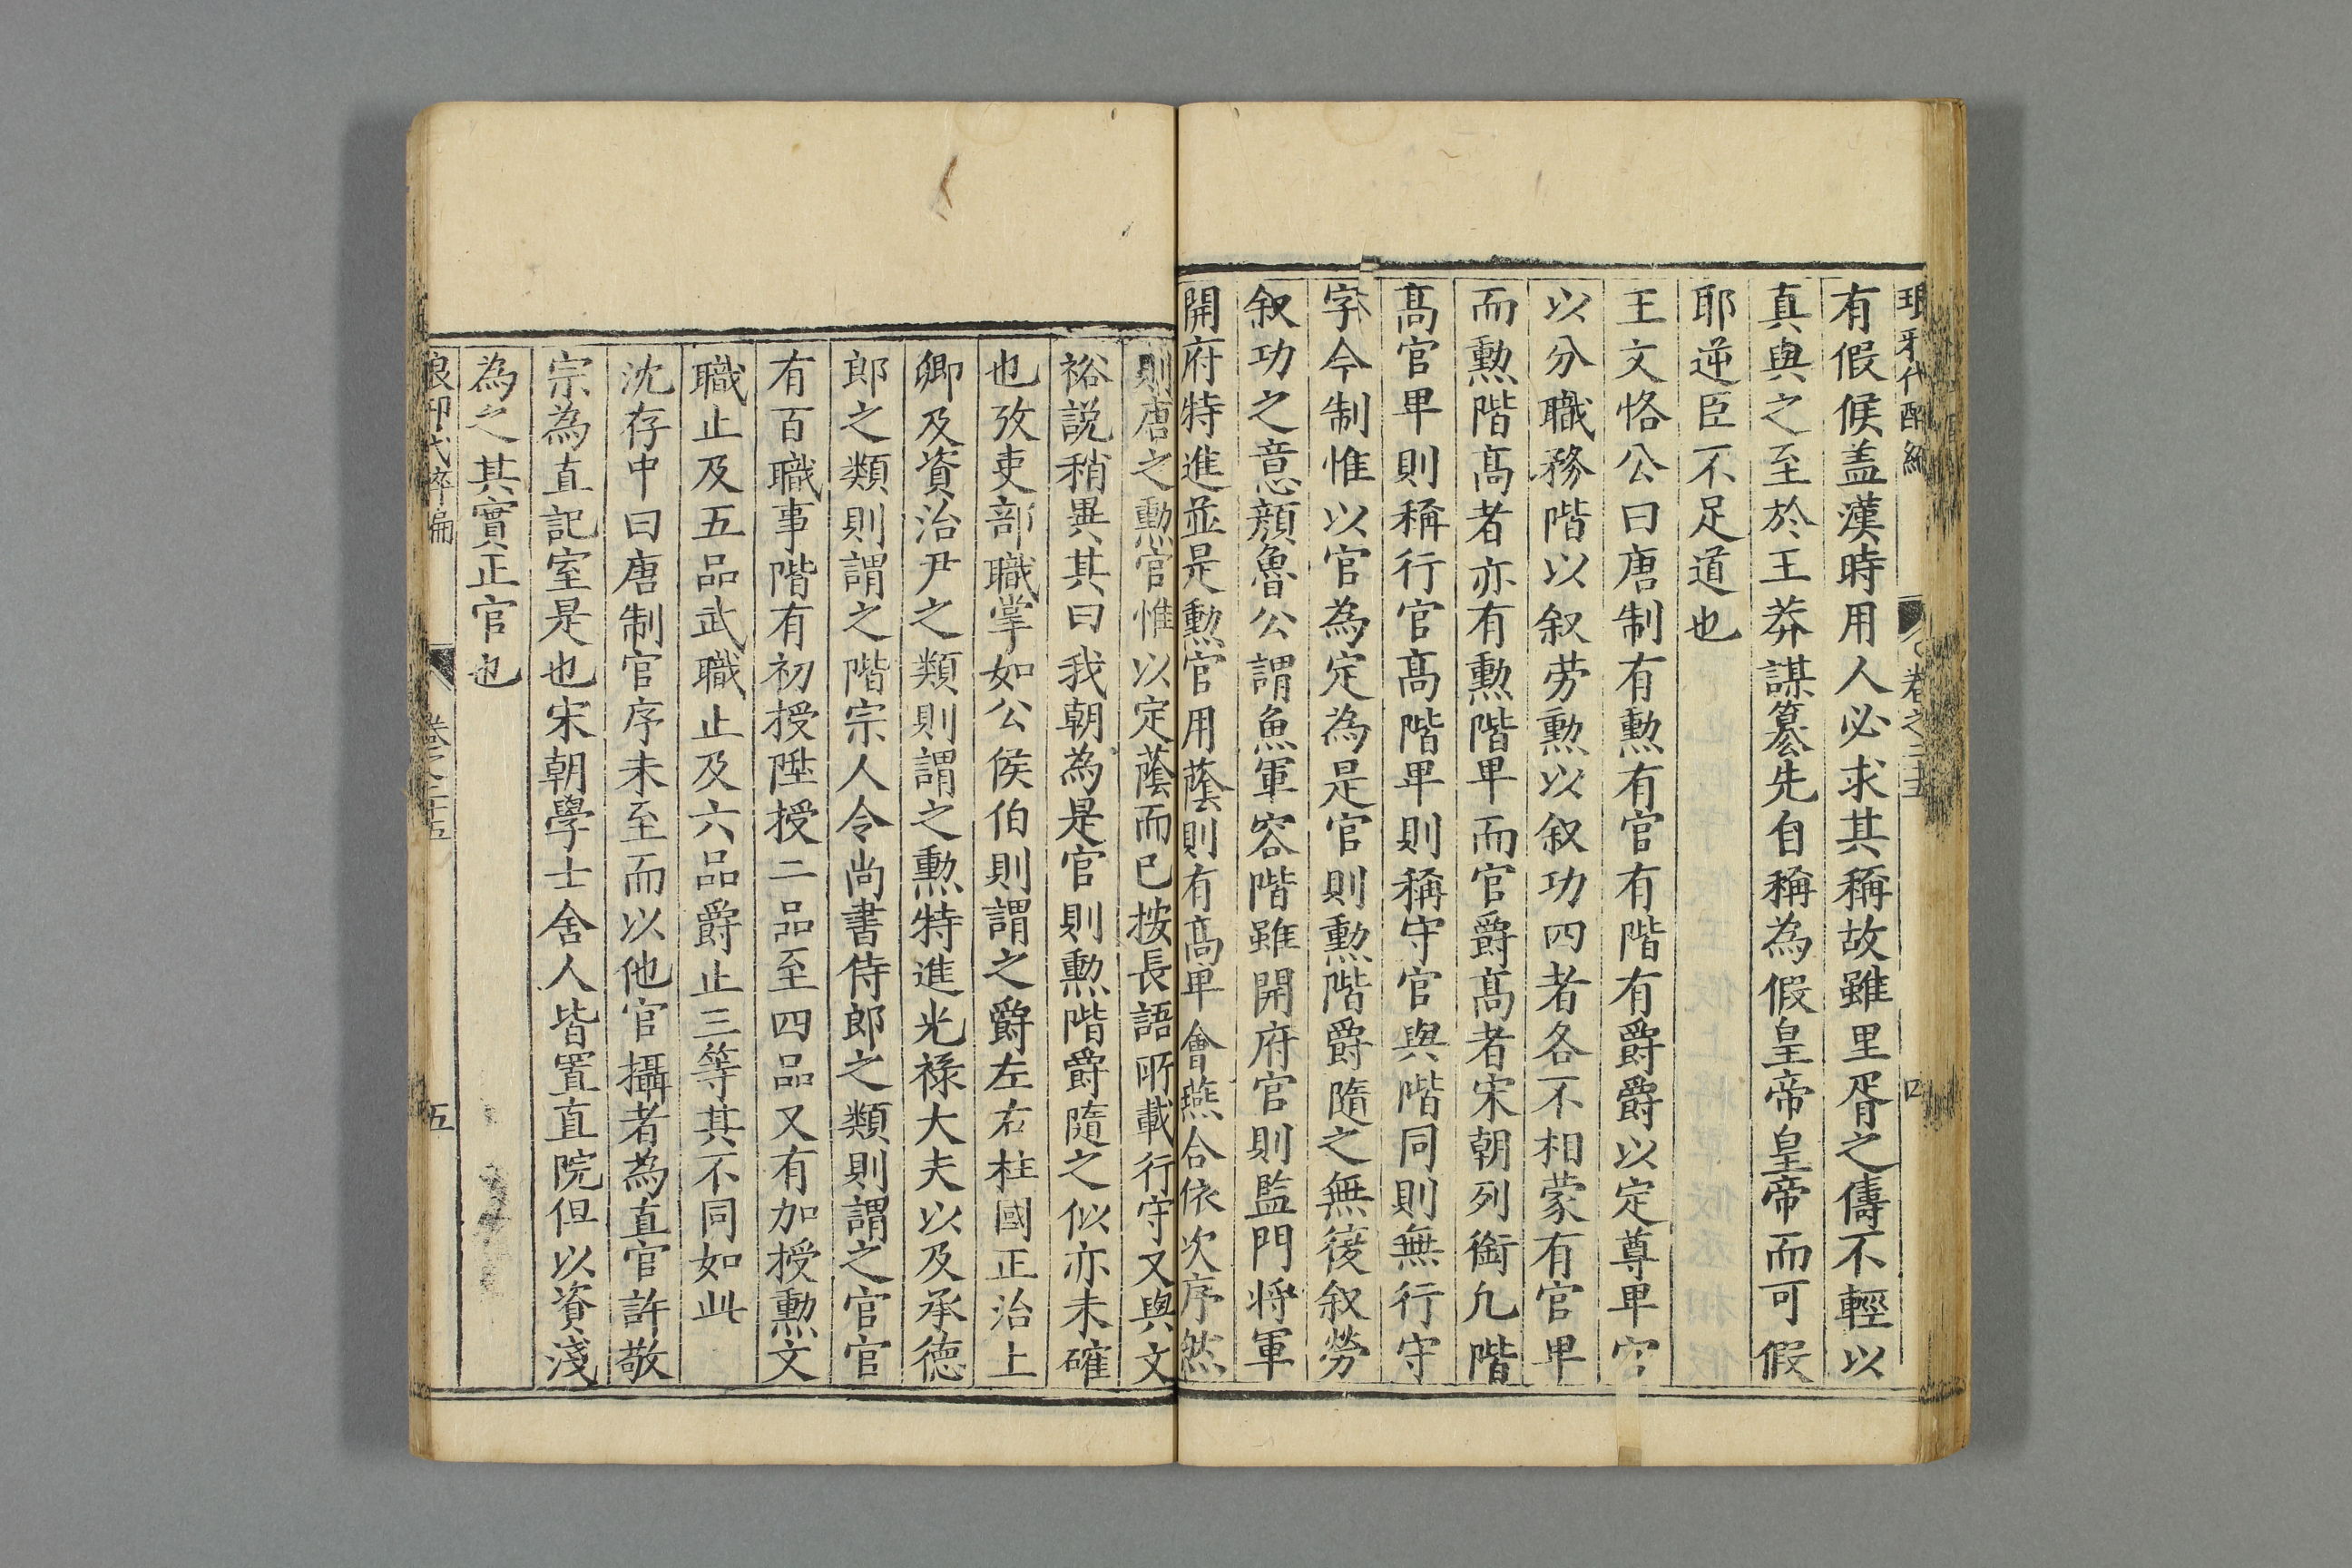 有假候盖漢時用人必求其稱故雖里胥之儔不輕以
真與之至於王莽謀篡先自稱為假皇帝皇帝而可假
耶逆臣不足道也
王文恪公曰唐制有勲有官有階有爵爵以定尊卑官
以分職務階以叙劳勲以叙功四者各不相蒙有官卑
而勲階髙者亦有勲階卑而官爵髙者宋朝列銜凢階
髙官卑則稱行官髙階卑則稱守官與階同則無行守
字今制惟以官為定為是官則勲階爵隨之無復叙勞
叙功之意顔魯公謂魚軍容階雖開府官則監門将軍
開府特進並是勲官用蔭則有髙卑會燕合依次序然
則唐之勲官惟以定蔭而已按長語所載行守又與文
裕説稍異其曰我朝為是官則勲階爵隨之似亦未確
也攷吏部職掌如公侯伯則謂之爵左右柱國正治上
卿及資治尹之類則謂之勲特進光祿大夫以及承德
郎之類則謂之階宗人令尚書侍郎之類則謂之官官
有百職事階有初授陞授二品至四品又有加授勲文
職止及五品武職止及六品爵止三等其不同如此
沈存中曰唐制官序未至而以他官攝者為直官許敬
宗為直記室是也宋朝學士舍人皆置直院但以資淺
為之其實正官也
卷之三十五
五